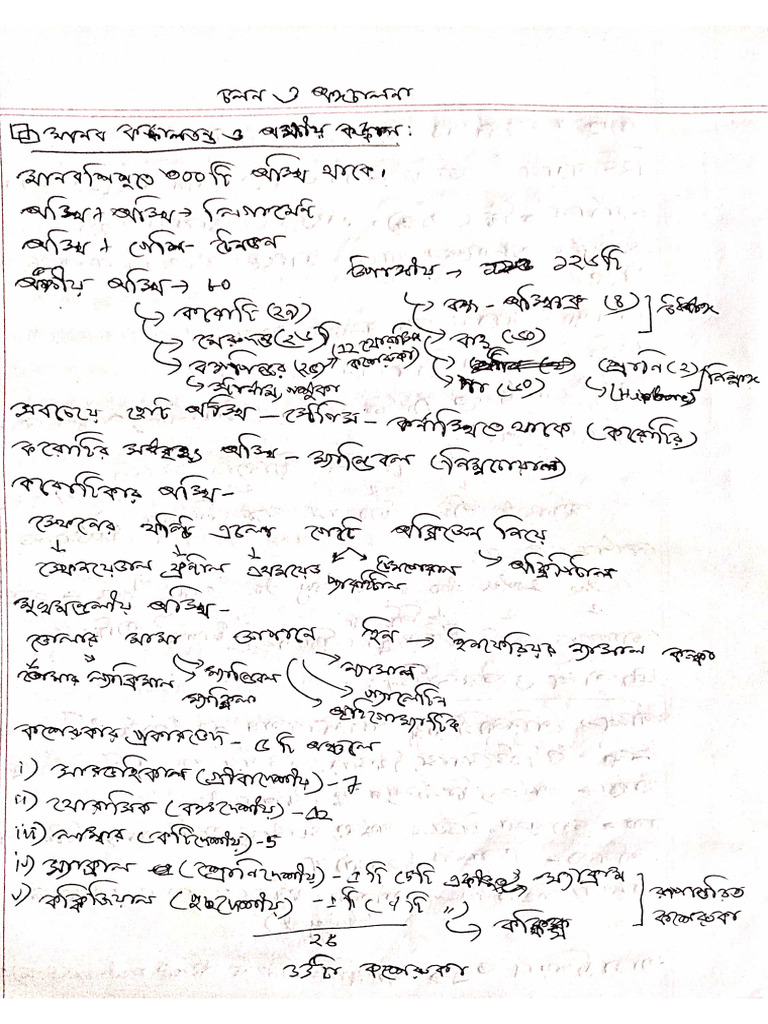 চলন ও অঙ্গচালনা
মানব কঙ্কালতন্ত্র ও অক্ষীয় কঙ্কাল:
মানবশিশুতে ৩০০টি অস্থি থাকে।
অস্থি + অস্থি → লিগামেন্ট
অস্থি + পেশি - টেনডন
অক্ষীয় অস্থি → ৮০
উপাঙ্গীয় → ১২৬টি
→ করোটি (২৯)
→ বক্ষ - অস্থিচক্র (৪)
→ মেরুদণ্ড (২৬) (12 থোরাসিক কশেরুকা)
→ বাহু (৬০)
→ বক্ষপিঞ্জর (২৫)
শ্রোণি (২)
→ পা (৬০)
→ (Hipbone)
সবচেয়ে ছোট অস্থি - স্টেপিস - কর্ণাস্থিতে থাকে (করোটির)
করোটির অস্থি - ম্যান্ডিবল (নিম্নচোয়াল)
করোটিকার অস্থি -
স্ফেনের ফন্টি এলো পেটে অক্সিজেন নিয়ে
স্ফেনয়েডাল ফ্রন্টাল এথময়েড টেমপোরাল প্যারাইটাল → অক্সিপিটাল
মুখমণ্ডলীয় অস্থি -
ভোলার মামা জাপানে ছিল → ইনফেরিয়র ন্যাসাল কঙ্কা
ভোমার ল্যাক্রিমাল ম্যান্ডিবল ম্যাক্সিলা → ন্যাসাল
→ প্যালেটিন
→ জাইগোম্যাটিক
কশেরুকার প্রকারভেদ - ৫ টি অঞ্চলে
i) সারভাইকাল (গ্রীবাদেশীয়) - 7
ii) থোরাসিক (বক্ষদেশীয়) - 12
iii) লাম্বার (কটিদেশীয়) - 5
iv) স্যাক্রাল (শ্রোণিদেশীয়) - 1 টি (5টি একীভূত) → স্যাক্রাম
v) কক্কিজিয়াল (পুচ্ছদেশীয়) - 1 টি (4 টি " → কক্কিক্স
রূপান্তরিত কশেরুকা
২৬
৩৩টা কশেরুকা